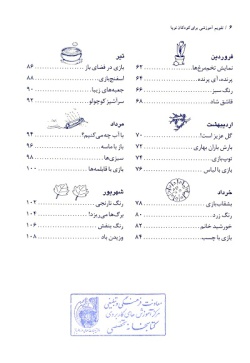 ۶ / تقویم آموزشی برای کودکان نوپا
فروردین
نمایش تخم‌مرغ‌ها ... ۶۲
پرنده، آی پرنده ... ۶۴
رنگ سبز ... ۶۶
قاشق شاد ... ۶۸
اردیبهشت
گل عزیز است! ... ۷۰
بارش باران بهاری ... ۷۲
توپ‌بازی ... ۷۴
بازی با لباس ... ۷۶
خرداد
بشقاب‌بازی ... ۷۸
رنگ زرد ... ۸۰
خورشید خانم ... ۸۲
بازی با چسب ... ۸۴
تیر
بازی در فضای باز ... ۸۶
اسفنج‌بازی ... ۸۸
جعبه‌های زیبا ... ۹۰
سرآشپز کوچولو ... ۹۲
مرداد
با آب چه می‌کنیم؟ ... ۹۴
باز با ماسه ... ۹۶
سبزی‌ها ... ۹۸
بازی با قابلمه‌ها ... ۱۰۰
شهریور
رنگ نارنجی ... ۱۰۲
برگ‌ها می‌ریزد! ... ۱۰۴
رنگ بنفش ... ۱۰۶
وزیدن باد ... ۱۰۸
معاونت فرهنگی و تبلیغی
مرکز آموزش های کاربردی
کتابخانه تخصصی